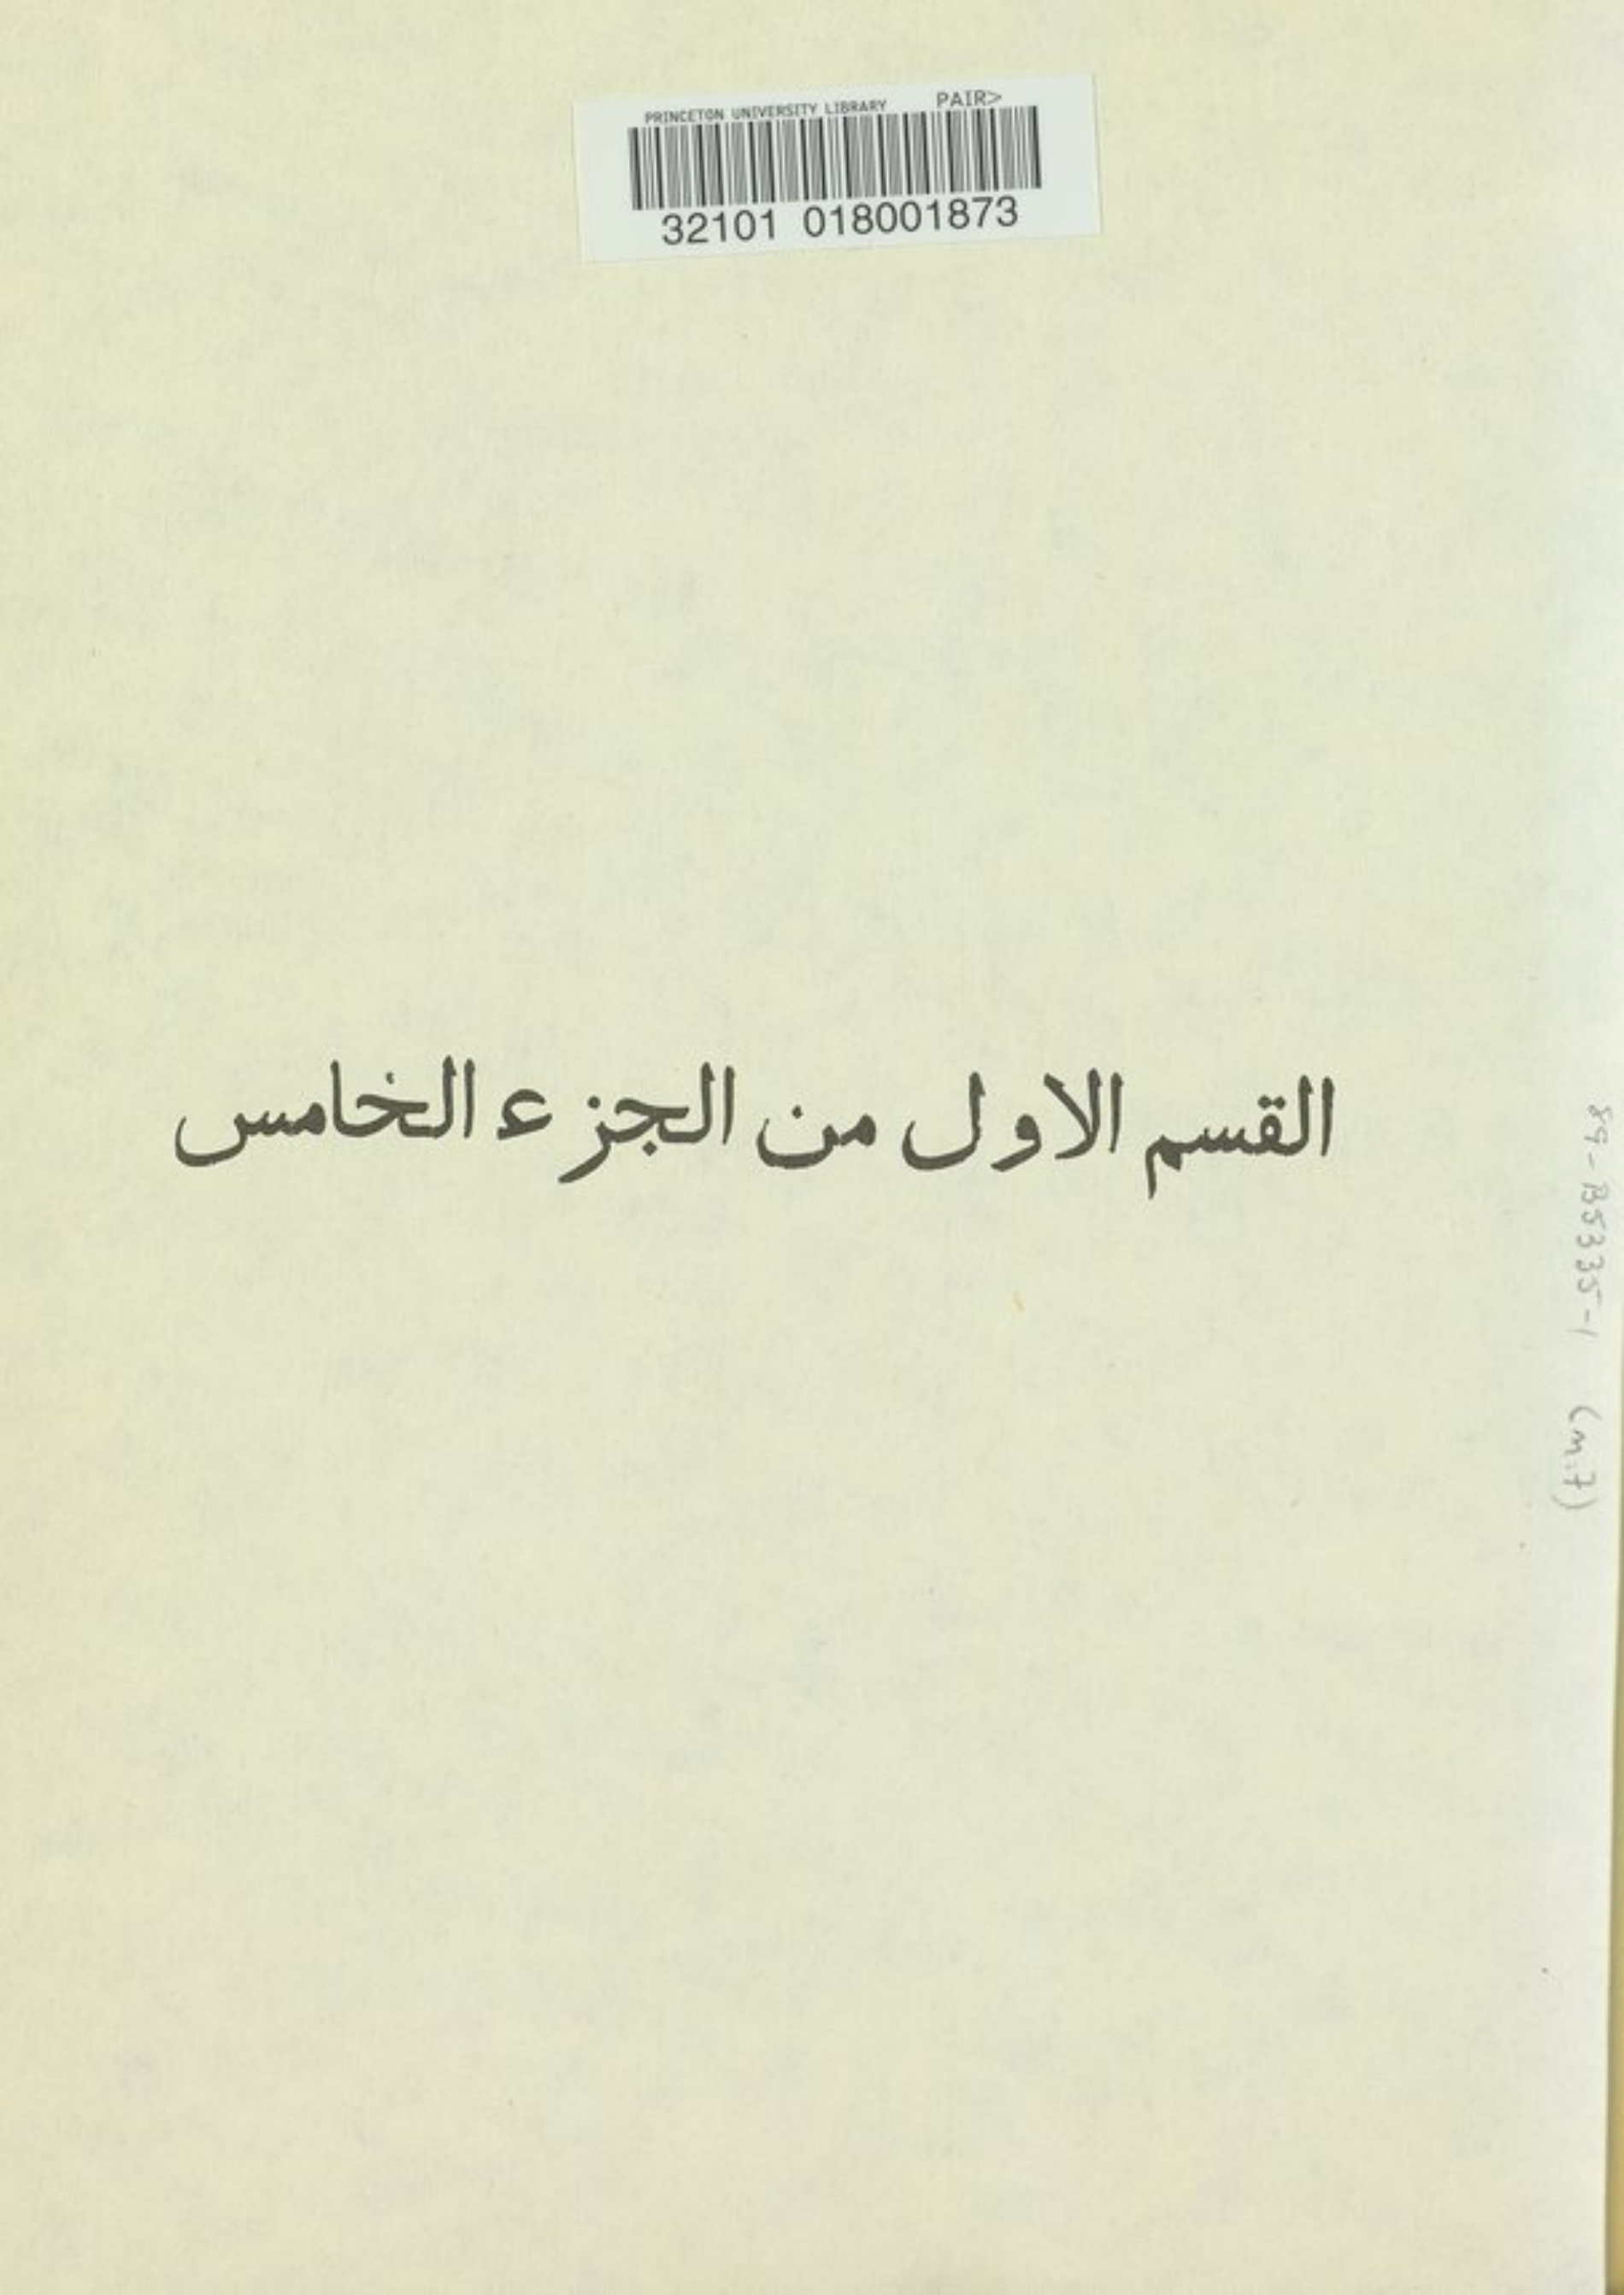 PRINCETON UNIVERSITY LIBRARY PAIR>
32101 018001873
القسم الاول من الجزء الخامس
89-B5335-1 (m.7)